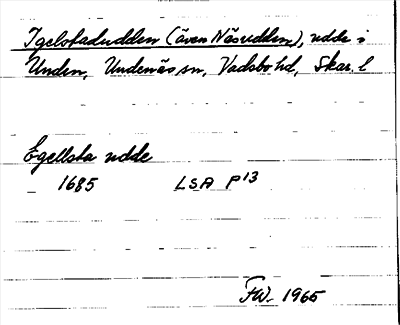 Igelstadudden (även Näsudden), udde i
Unden, Undenäs sn, Vadsbo hd, Skar. l
Egellsta udde
1685 LSA P13
FW 1965